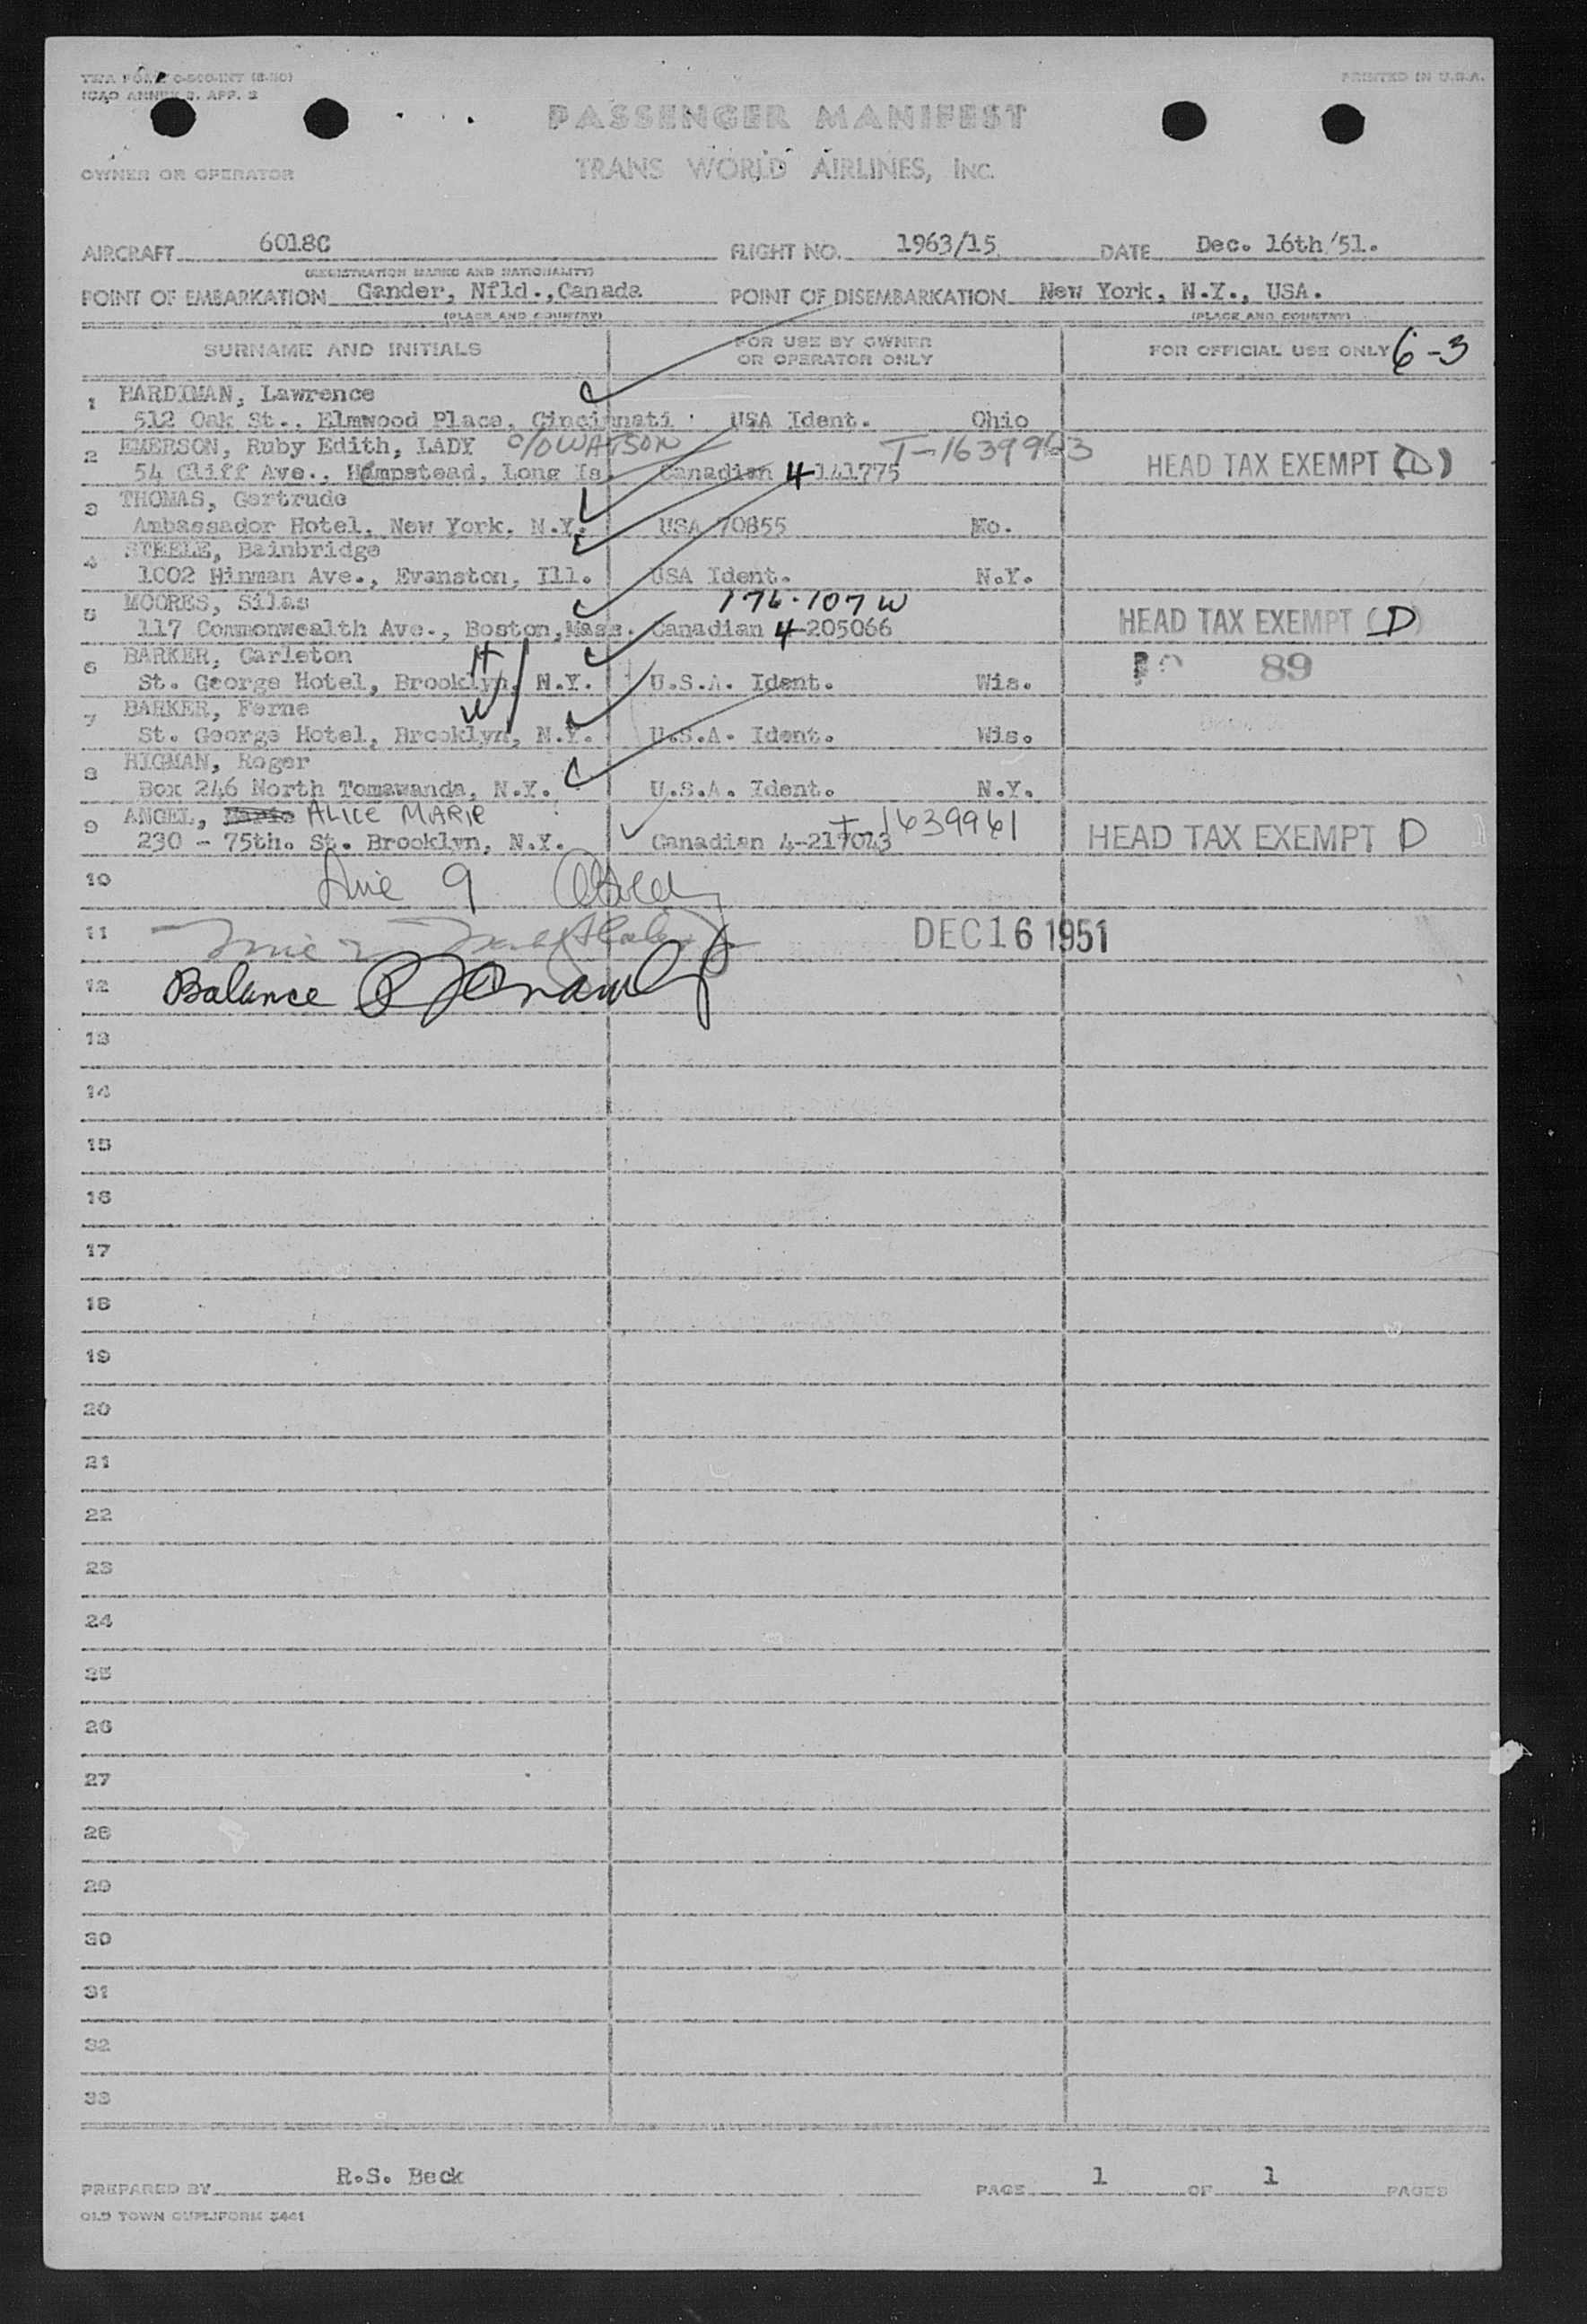 TWA FORM O-500-INT (8-50)
PRINTED IN U.S.A.
ICAO ANNEX 9, APP. 2
PASSENGER MANIFEST
OWNER OR OPERATOR
TRANS WORLD AIRLINES, INC.
AIRCRAFT 6018C FLIGHT NO. 1963/15 DATE Dec. 16th/51.
(REGISTRATION MARKS AND NATIONALITY)
POINT OF EMBARKATION Gander, Nfld.,Canada POINT OF DISEMBARKATION New York, N.Y., USA.
(PLACE AND COUNTRY) (PLACE AND COUNTRY)
SURNAME AND INITIALS FOR USE BY OWNER OR OPERATOR ONLY FOR OFFICIAL USE ONLY 6-3
1 HARDIMAN, Lawrence
512 Oak St., Elmwood Place, Cincinnati USA Ident. Ohio
2 EMERSON, Ruby Edith, LADY c/o WATSON T-1639963
54 Cliff Ave., Hempstead, Long Is Canadian 4-141775 HEAD TAX EXEMPT (D)
3 THOMAS, Gertrude
Ambassador Hotel, New York, N.Y. USA 70855 Mo.
4 STEELE, Bainbridge
1002 Hinman Ave., Evanston, Ill. USA Ident. N.Y.
5 MOORES, Silas 176-107 W
117 Commonwealth Ave., Boston,Mass. Canadian 4-205066 HEAD TAX EXEMPT (D)
6 BARKER, Carleton H 89
St. George Hotel, Brooklyn, N.Y. U.S.A. Ident. Wis.
7 BARKER, Ferne W
St. George Hotel, Brooklyn, N.Y. U.S.A. Ident. Wis.
8 HIGMAN, Roger
Box 246 North Tomawanda, N.Y. U.S.A. Ident. N.Y.
9 ANGEL, Marie ALICE MARIE T-1639961
230 - 75th. St. Brooklyn, N.Y. Canadian 4-217043 HEAD TAX EXEMPT D
10 Line 9
11 DEC 16 1951
12 Balance
13
14
15
16
17
18
19
20
21
22
23
24
25
26
27
28
29
30
31
32
33
PREPARED BY R.S. Beck PAGE 1 OF 1 PAGES
OLD TOWN DUPLIFORM 5441